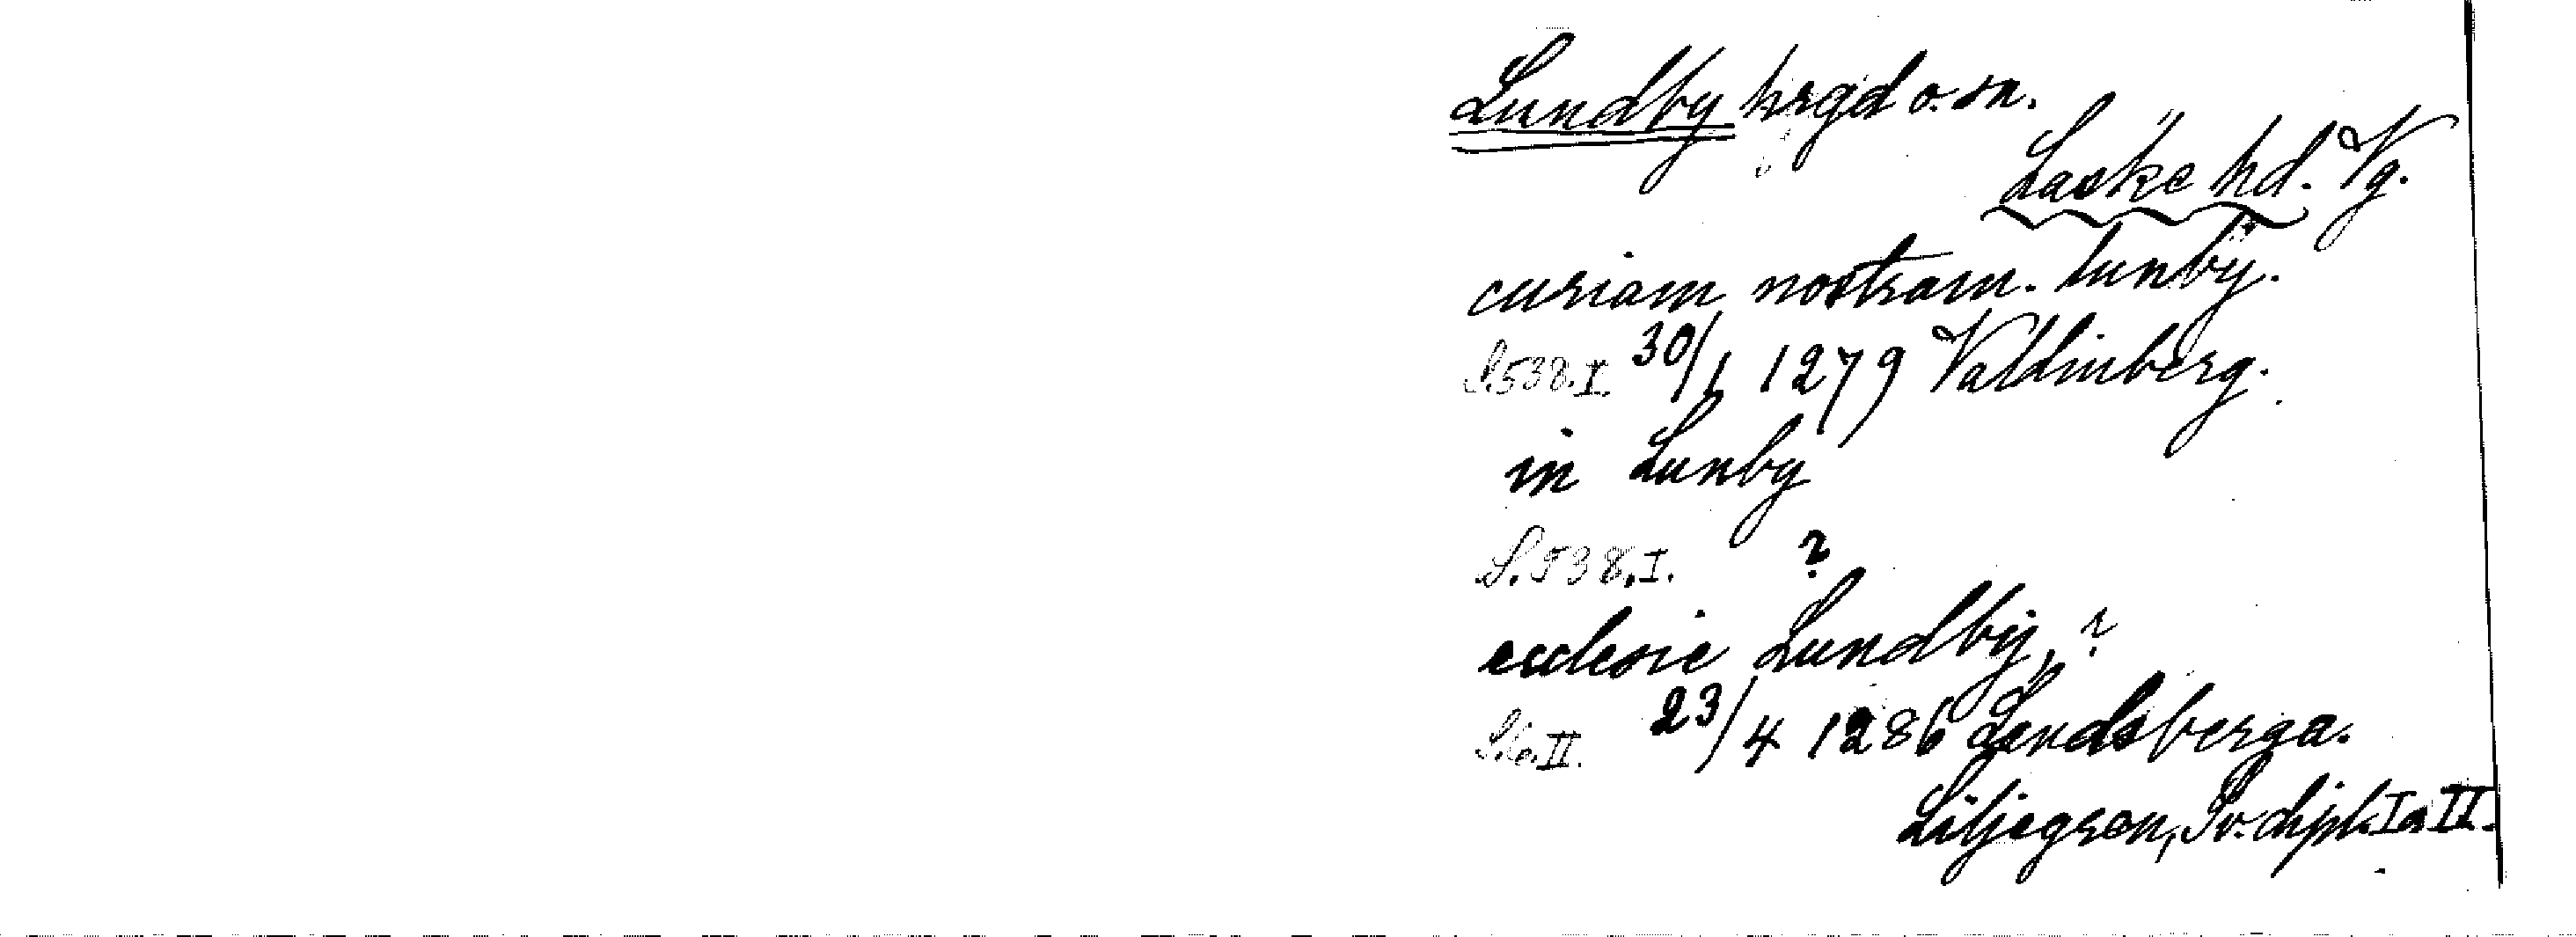 Lundby hrgd o. sn.
Laske hd. Vg.
curiam nostram. lunby.
S. 538. I. 30/1 1279 Valdinberg.
in Lunby
S. 538. I. ?
ecclesie Lundby, ?
S. 6. II. 23/4 1286 Lendsberga.
Liljegren, Sv. dipl. I o II.